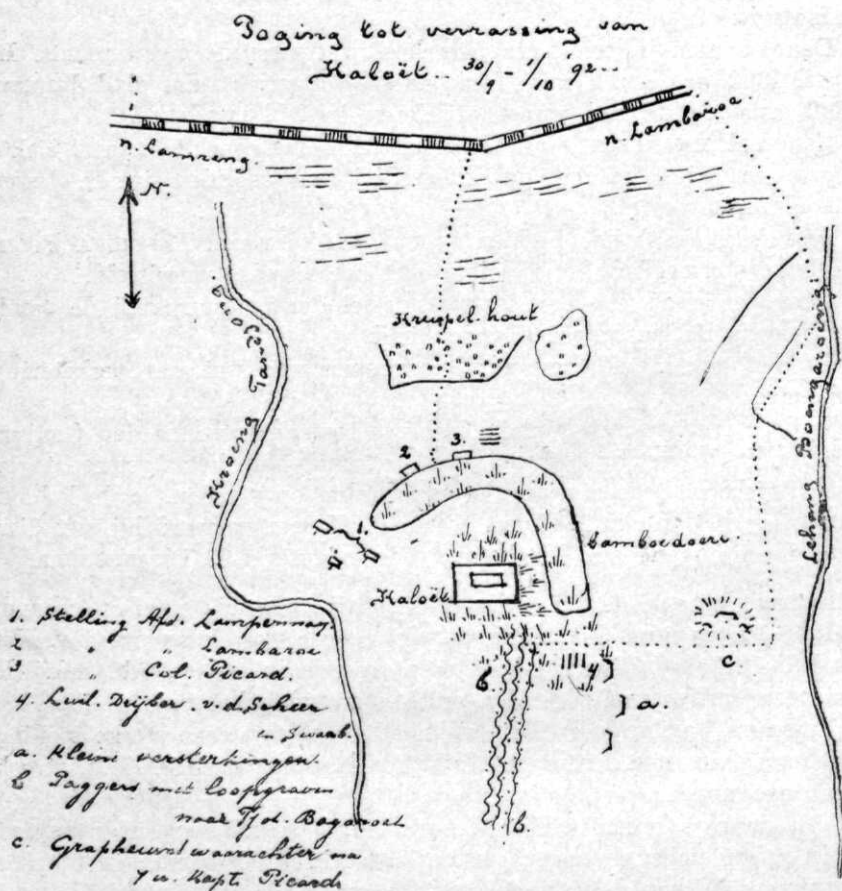 Poging tot verrassing van
Kaloët.. 30/9 - 1/10 '92..
n. Lamreng.
n. Lambaroe
N.
Kreupel-hout
Kroeng
Lehong Boengaroeng
2 3.
1.
bamboedoeri
Kaloët
4
a.
b.
c
b.
1. Stelling Afd. Lampermay
2 " " Lambaroe
3 " Col. Picard.
4. Luit. Deijber. v.d. Scheer
en Swaab.
a. Kleine versterkingen.
b Paggers met loopgraven
naar Tjot.
c. Grapheuvel waarachter na
7 u. Kapt. Picards